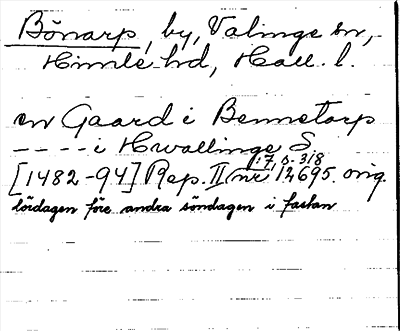 Bönarp, by, Valinge sn,
Himle hd, Hall. l.
en Gaard i Bennetorp
---- i Hwallinge S.
17, s. 318
[1482-94] Rep. II nr 12695. orig.
lördagen före andra söndagen i fastan